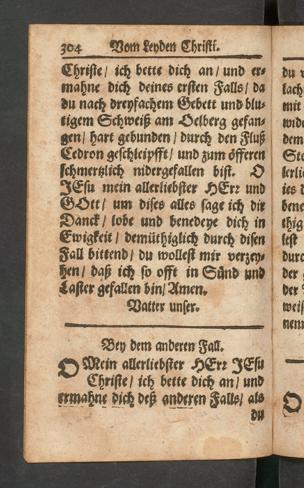 304 Vom Leyden Christi.
Christe / ich bette dich an / und er-
mahne dich deines ersten Falls / da
du nach dreyfachem Gebett und blu-
tigem Schweiß am Oelberg gefan-
gen / hart gebunden / durch den Fluß
Cedron geschleipfft / und zum öfferen
schmertzlich nidergefallen bist. O
JEsu mein allerliebster HErr und
GOtt / um dises alles sage ich dir
Danck / lobe und benedeye dich in
Ewigkeit / demüthiglich durch disen
Fall bittend / du wollest mir verzey-
hen / daß ich so offt in Sünd und
Laster gefallen bin / Amen.
Vatter unser.
Bey dem anderen Fall.
O Mein allerliebster HErr JESu
Christe / ich bette dich an / und
ermahne dich deß anderen Falls / als
du